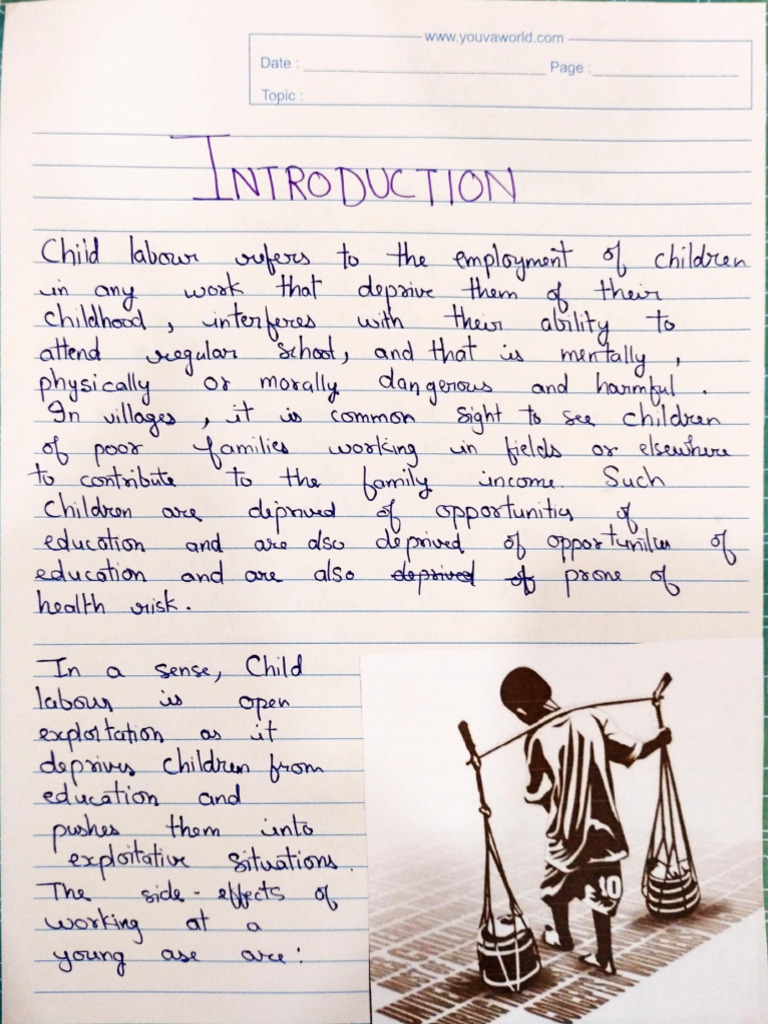 www.youvaworld.com
Date : Page :
Topic :
INTRODUCTION
Child labour refers to the employment of children
in any work that deprive them of their
childhood, interferes with their ability to
attend regular school, and that is mentally,
physically or morally dangerous and harmful.
In villages, it is common sight to see children
of poor families working in fields or elsewhere
to contribute to the family income. Such
children are deprived of opportunities of
education and are also deprived of opportunities of
education and are also deprived of prone of
health risk.
In a sense, Child
labour is open
exploitation as it
deprives children from
education and
pushes them into
exploitative situations.
The side-effects of
working at a
young age are:
10